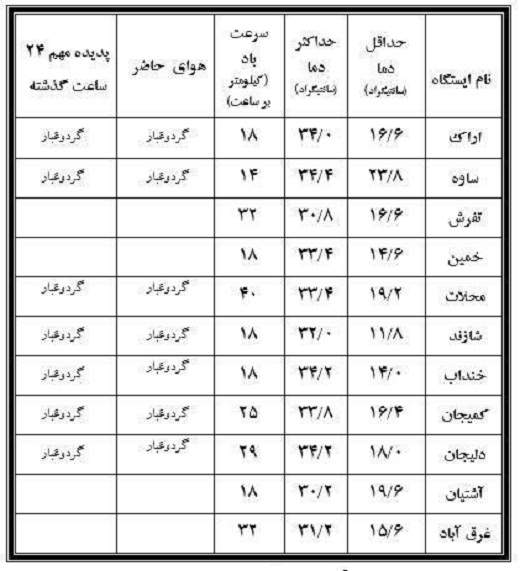 نام ایستگاه حداقل دما (سانتیگراد) حداکثر دما (سانتیگراد) سرعت باد (کیلومتر بر ساعت) هوای حاضر پدیده مهم ۲۴ ساعت گذشته
اراک ۱۶/۶ ۳۴/۰ ۱۸ گردوغبار گردوغبار
ساوه ۲۳/۸ ۳۴/۴ ۱۴ گردوغبار گردوغبار
تفرش ۱۶/۶ ۳۰/۸ ۳۲
خمین ۱۴/۶ ۳۳/۴ ۱۸
محلات ۱۹/۲ ۳۳/۴ ۴۰ گردوغبار گردوغبار
شازند ۱۱/۸ ۳۲/۰ ۱۸ گردوغبار گردوغبار
خنداب ۱۴/۰ ۳۴/۲ ۱۸ گردوغبار گردوغبار
کمیجان ۱۶/۴ ۳۳/۸ ۲۵ گردوغبار گردوغبار
دلیجان ۱۸/۰ ۳۴/۲ ۲۹ گردوغبار گردوغبار
آشتیان ۱۹/۶ ۳۰/۲ ۱۸
غرق آباد ۱۵/۶ ۳۱/۲ ۳۲